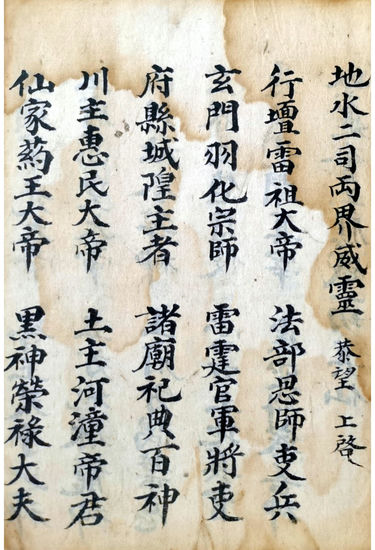 地水二司両界威靈 恭望 上啓
行壇雷祖大帝 法部恩師吏兵
玄門羽化宗師 雷霆官軍將吏
府縣城隍主者 諸廟祀典百神
川主惠民大帝 土主河潼帝君
仙家药王大帝 黑神榮祿大夫